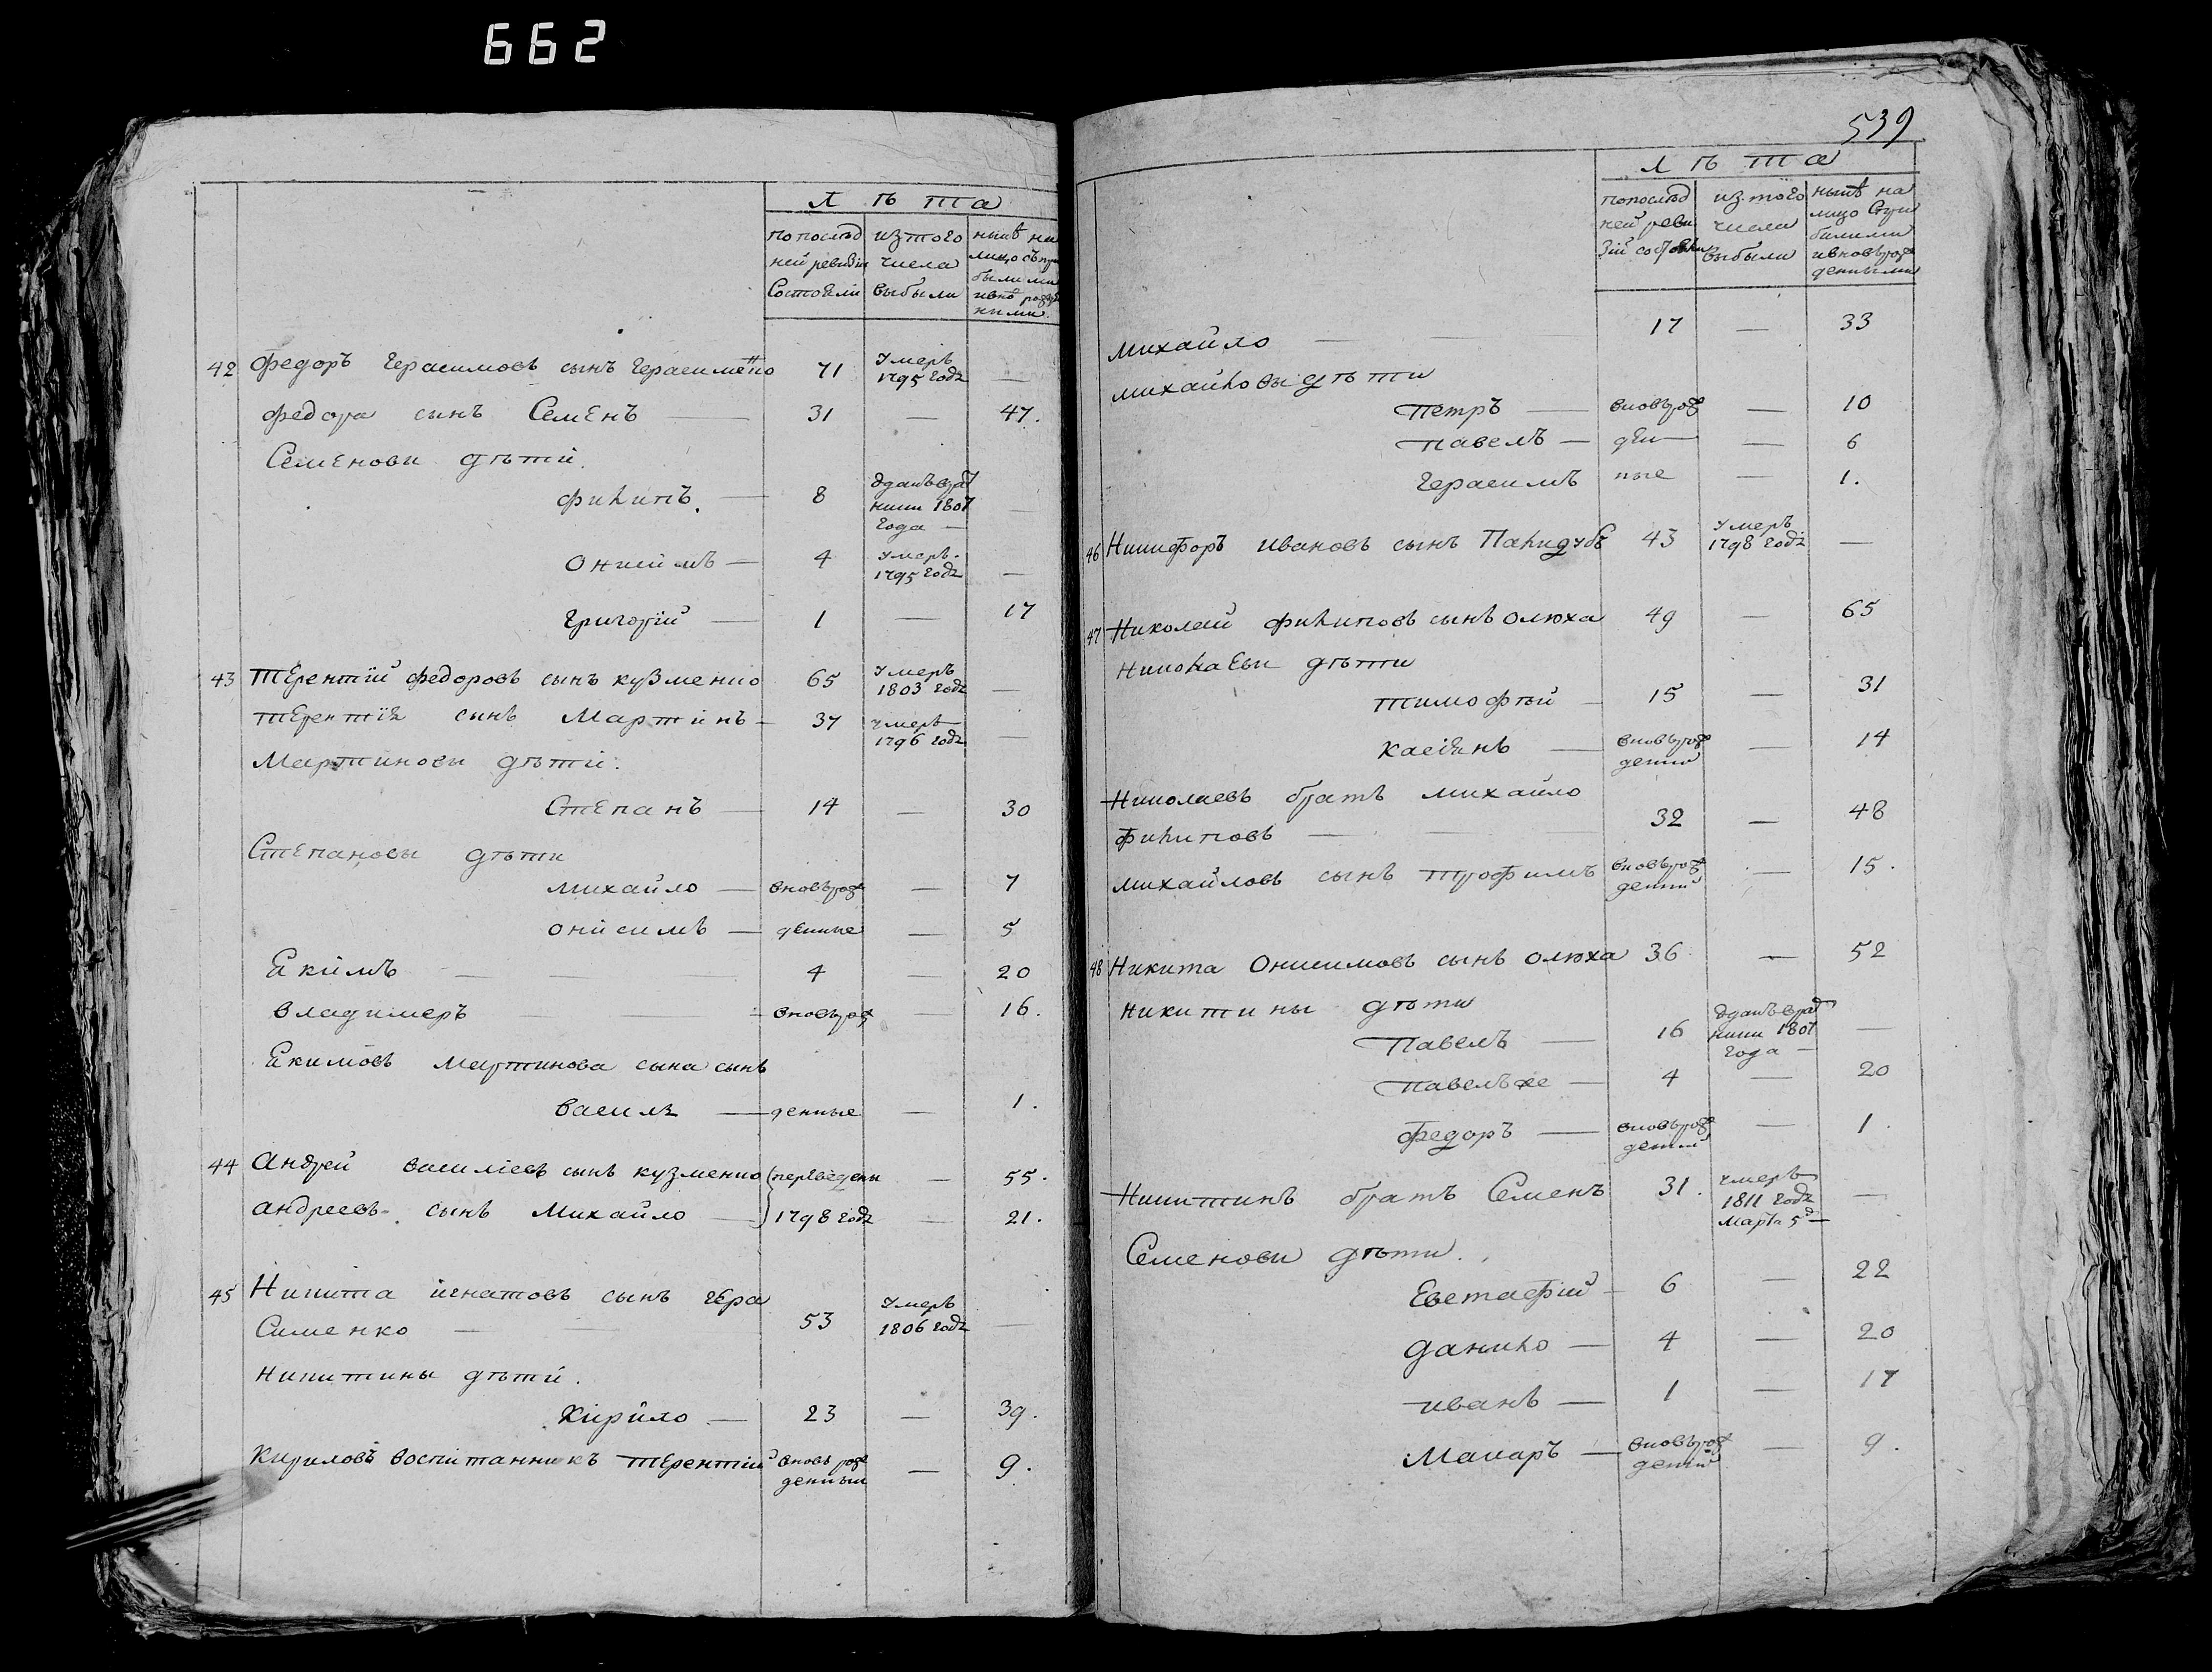 662
Лѣта
по послѣд
ней ревизіи
Состояли
из того
числа
выбыли
нынѣ на
лицо съ при
былыми
и вно рожде
ными
42 Федоръ Герасимовъ сынъ Герасименко 71 Умеръ 1795 годa —
Федора сынъ Семенъ — 31 — 47.
Семеновы дѣти.
Филипъ. — 8 Оданъ в рат ники 1807 года — —
Онисимъ — 4 Умеръ. 1795 года —
Григорій — 1 — 17
43 Терентій Федоровъ сынъ Кузменко 65 Умеръ 1803 года —
Терентія сынъ Мартинъ — 37 умеръ 1796 года —
Мартиновы дѣти.
Степанъ — 14 — 30
Степановы дѣти
Михайло — вновь рож — 7
Онисимъ — денные — 5
Якимъ — 4 20
Владимеръ — вновь рож — 16.
Якимовъ Мартинова сына сынъ
Василь — денные — 1.
44 Андрей Василіевъ сынъ Кузменко переведены — 55.
Андреевъ сынъ Михайло — 1798 года — 21.
45 Никита Игнатовъ сынъ Гера
сименко — 53 Умеръ 1806 года —
Никитины дѣти.
Кирило — 23 — 39.
Кириловъ воспитанникъ Терентій вновь рож денный — 9.
539
Лѣта
по послѣд
ней реви
зіи состояли
из того
числа
выбыли
нынѣ на
лицо с при
былими
и вновь рож
денными
Михайло — 17 — 33
Михайловы дѣти
Петръ — вновь рож — 10
Павелъ — ден — 6
Герасимъ ные — 1.
46 Никифоръ Ивановъ сынъ Палидубъ 43 Умеръ 1798 года —
47 Николай Филиповъ сынъ Олюха 49 — 65
Николаевы дѣти
Тимофѣй — 15 — 31
Касіянъ — вновь рож денны — 14
Николаевъ братъ Михайло
Филиповъ — 32 — 48
Михайловъ сынъ Трофимъ вновь рож денны — 15.
48 Никита Онисимовъ сынъ Олюха 36 — 52
Никитины дѣти
Павелъ — 16 Оданъ в рат ники 1807 года — —
Павелъ же — 4 — 20
Федоръ — вновь рож денны — 1.
Никитинъ братъ Семенъ 31. умеръ 1811 года Марта 5 д — —
Семеновы дѣти.
Евстафій — 6 — 22
Данило — 4 — 20
Иванъ — 1 — 17
Макаръ — вновь рож денны — 9.